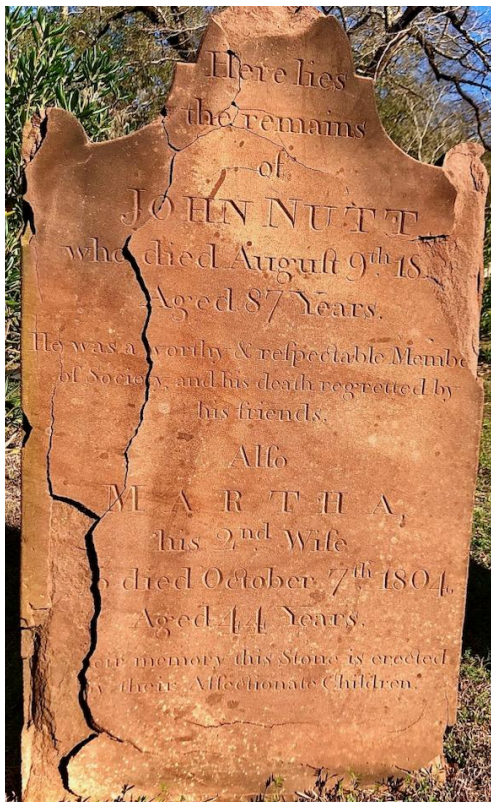 Here lies
the remains
of
JOHN NUTT
who died Auguſt 9th. 18
Aged 87 Years.
He was a worthy & reſpectable Membe
of Society, and his death regretted by
his friends.
Alſo
MARTHA,
his 2nd Wife
died October 7th 1804.
Aged 44 Years.
memory this Stone is erected
by their Affectionate Children.